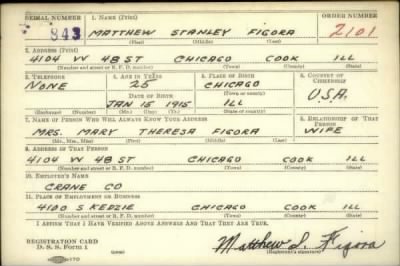 SERIAL NUMBER 1. NAME (Print) ORDER NUMBER
843 MATTHEW STANLEY FIGORA 2101
(First) (Middle) (Last)
2. ADDRESS (Print)
4104 W 48 ST CHICAGO COOK ILL
(Number and street or R. F. D. number) (Town) (County) (State)
3. TELEPHONE 4. AGE IN YEARS 5. PLACE OF BIRTH 6. COUNTRY OF CITIZENSHIP
NONE 25 CHICAGO
DATE OF BIRTH (Town or county) U.S.A.
JAN 15 1915 ILL
(Exchange) (Number) (Mo.) (Day) (Yr.) (State or country)
7. NAME OF PERSON WHO WILL ALWAYS KNOW YOUR ADDRESS 8. RELATIONSHIP OF THAT PERSON
MRS. MARY THERESA FIGORA WIFE
(Mr., Mrs., Miss) (First) (Middle) (Last)
9. ADDRESS OF THAT PERSON
4104 W 48 ST CHICAGO COOK ILL
(Number and street or R. F. D. number) (Town) (County) (State)
10. EMPLOYER'S NAME
CRANE CO
11. PLACE OF EMPLOYMENT OR BUSINESS
4100 S KEDZIE CHICAGO COOK ILL
(Number and street or R. F. D. number) (Town) (County) (State)
I AFFIRM THAT I HAVE VERIFIED ABOVE ANSWERS AND THAT THEY ARE TRUE.
REGISTRATION CARD
D. S. S. Form 1 Matthew S. Figora
(Registrant's signature)